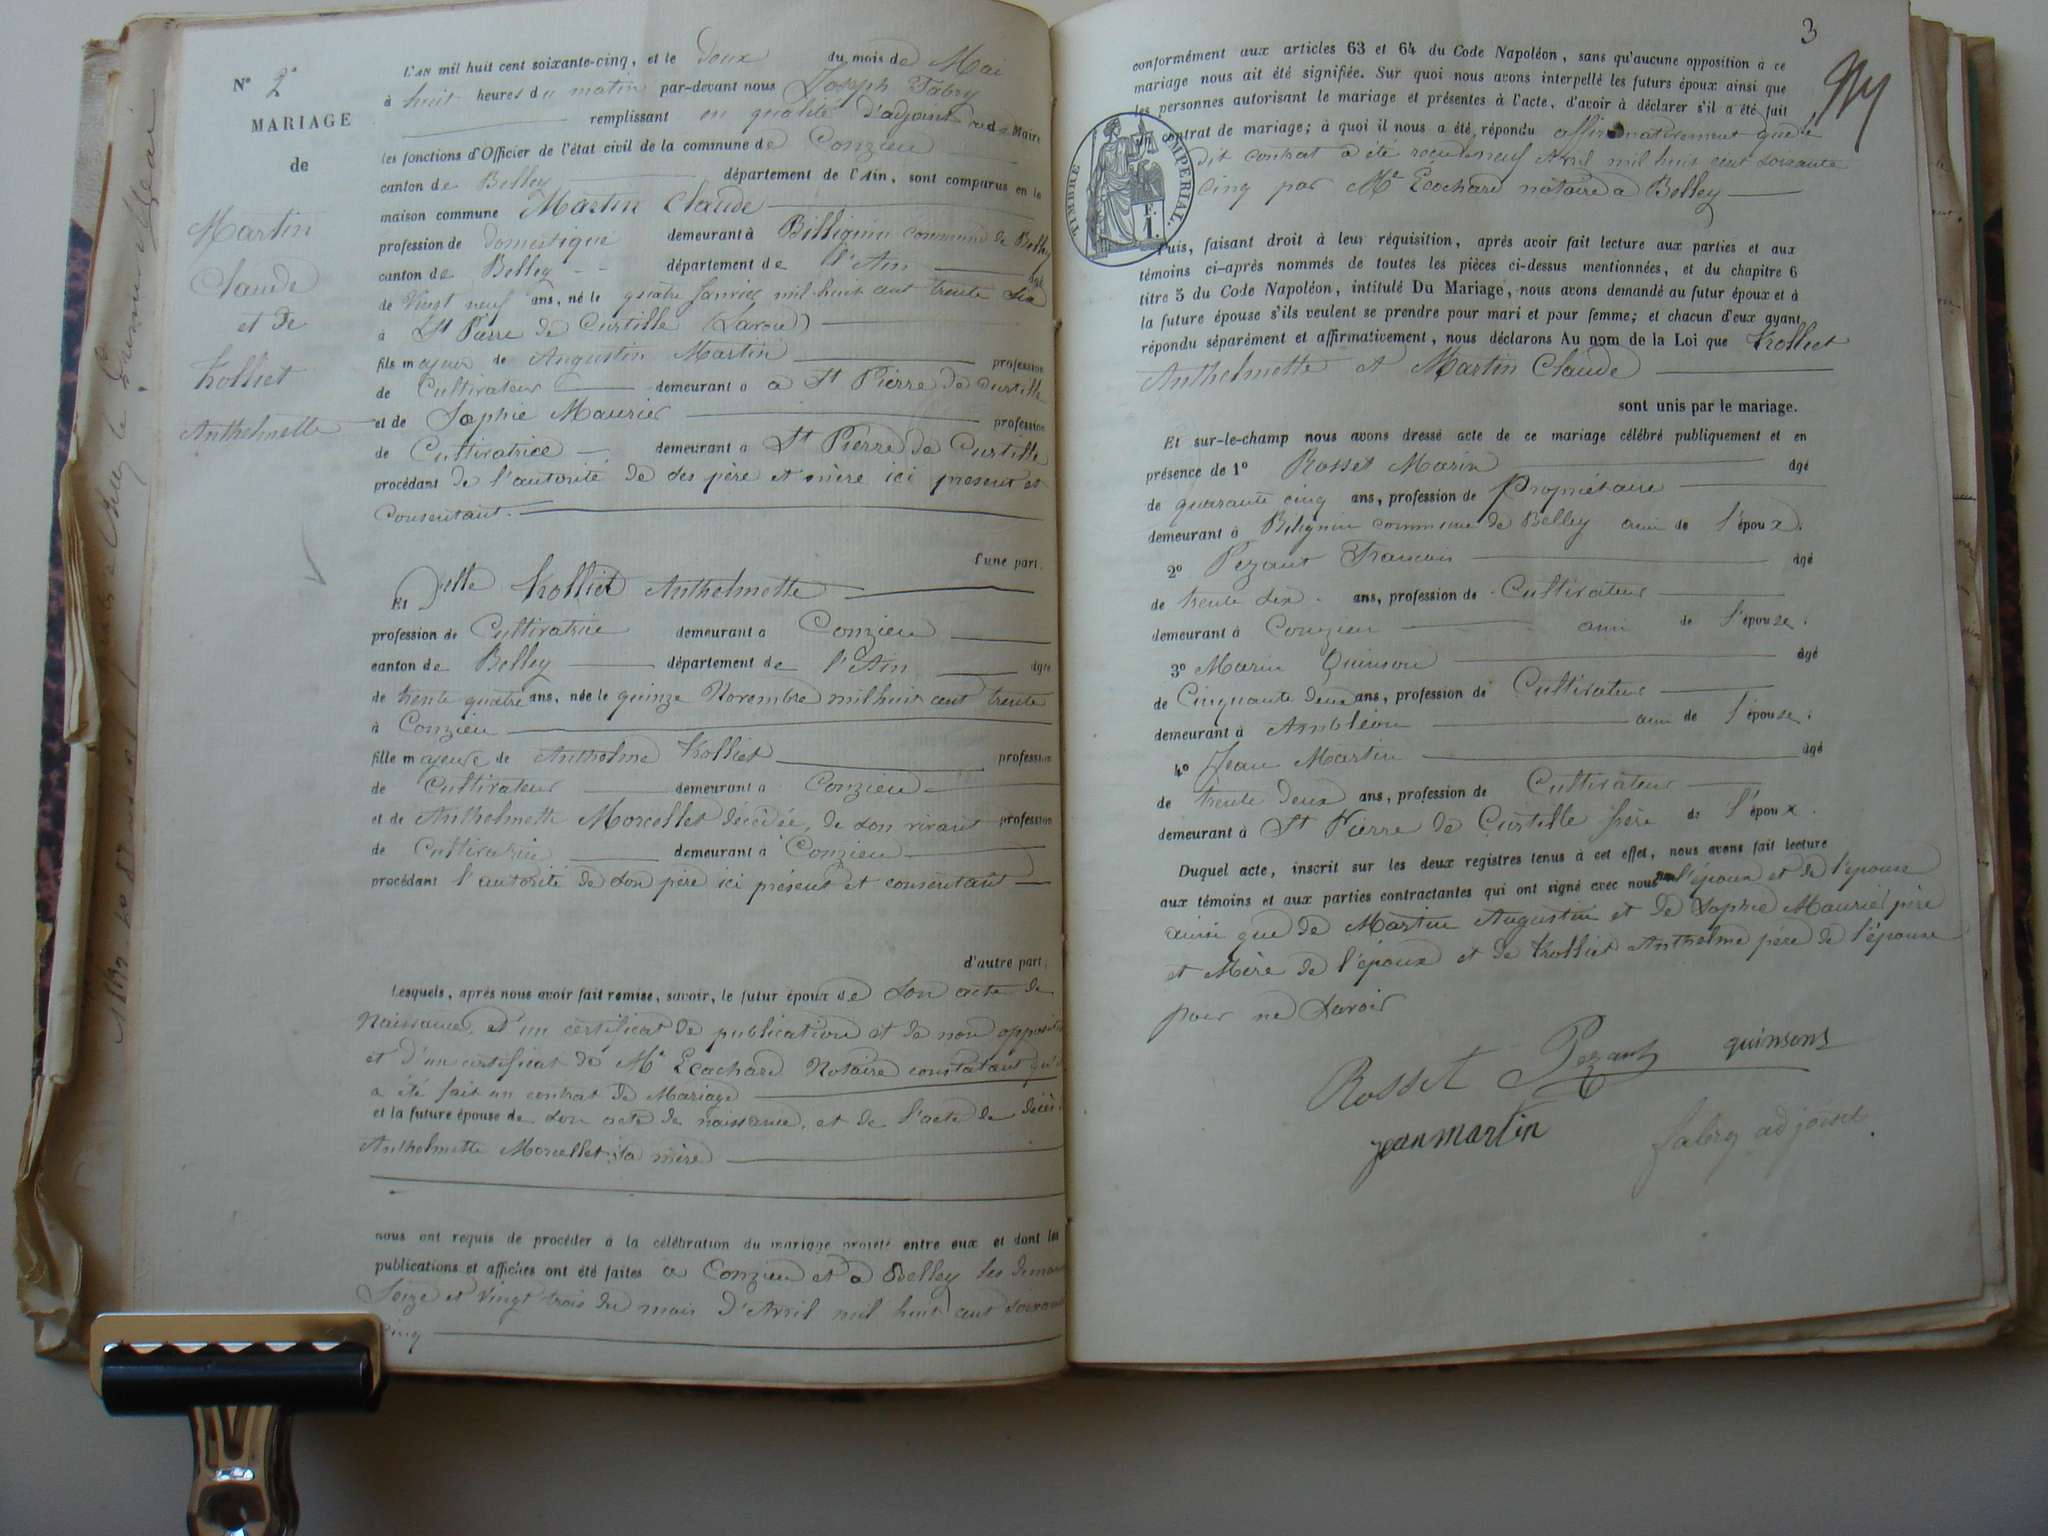 Nº 2
MARIAGE
de
Martin
Claude
et de
Trolliet
Anthelmette
L'AN mil huit cent soixante-cinq, et le Deux du mois de Mai
à huit heures du matin par-devant nous Joseph Fabry
remplissant en qualité d'adjoint au Maire
les fonctions d'Officier de l'état civil de la commune de Conzieu
canton de Belley département de l'Ain, sont comparus en la
maison commune Martin Claude
profession de Domestique demeurant à Billignin commune de Belley
canton de Belley département de l'Ain âgé
de Vingt neuf ans, né le quatre Janvier mil huit cent trente six
à St Pierre de Curtille (Savoie)
fils majeur de Augustin Martin profession
de Cultivateur demeurant a à St Pierre de Curtille
et de Sophie Maurier profession
de Cultivatrice demeurant a St Pierre de Curtille
procédant de l'autorité de ses père et mère ici présent et
Consentant.
d'une part.
Et Delle Trolliet Anthelmette
profession de Cultivatrice demeurant a Conzieu
canton de Belley département de l'Ain âgée
de trente quatre ans, née le quinze Novembre mil huit cent trente
à Conzieu
fille majeure de Anthelme Trolliet profession
de Cultivateur demeurant a Conzieu
et de Anthelmette Morcellet décédée, de son vivant profession
de Cultivatrice demeurant à Conzieu
procédant l'autorité de son père ici présent et consentant
d'autre part,
Lesquels, après nous avoir fait remise, savoir, le futur époux de son acte de
Naissance, d'un certificat de publication et de non opposition
et d'un certificat de Me Ecochard Notaire constatant qu'il
a été fait un contrat de Mariage
et la future épouse de son acte de naissance, et de l'acte de décès
Anthelmette Morcellet sa mère
nous ont requis de procéder à la célébration du mariage projeté entre eux et dont les
publications et affiches ont été faites à Conzieu et à Belley les
Seize et Vingt trois du mois d'Avril mil huit cent soixante
cinq
3
conformément aux articles 63 et 64 du Code Napoléon, sans qu'aucune opposition à ce
mariage nous ait été signifiée. Sur quoi nous avons interpellé les futurs époux ainsi que
les personnes autorisant le mariage et présentes à l'acte, d'avoir à déclarer s'il a été fait
contrat de mariage; à quoi il nous a été répondu affirmativement que le
dit contrat a été reçu le neuf Avril mil huit cent soixante
cinq par Me Ecochard notaire à Belley
TIMBRE IMPÉRIAL
F.
1.
Puis, faisant droit à leur réquisition, après avoir fait lecture aux parties et aux
témoins ci-après nommés de toutes les pièces ci-dessus mentionnées, et du chapitre 6
titre 5 du Code Napoléon, intitulé Du Mariage, nous avons demandé au futur époux et à
la future épouse s'ils veulent se prendre pour mari et pour femme; et chacun d'eux ayant
répondu séparément et affirmativement, nous déclarons Au nom de la Loi que Trolliet
Anthelmette et Martin Claude
sont unis par le mariage.
Et sur-le-champ nous avons dressé acte de ce mariage célébré publiquement et en
présence de 1º Rosset Marin âgé
de quarante cinq ans, profession de Propriétaire
demeurant à Bilignin commune de Belley ami de l'époux;
2º Pezant Francois âgé
de trente six ans, profession de Cultivateur
demeurant à Conzieu ami de l'épouse;
3º Marin Quinson âgé
de Cinquante deux ans, profession de Cultivateur
demeurant à Ambléon ami de l'épouse;
4º Jean Martin âgé
de trente deux ans, profession de Cultivateur
demeurant à St Pierre de Curtille frère de l'époux.
Duquel acte, inscrit sur les deux registres tenus à cet effet, nous avons fait lecture
aux témoins et aux parties contractantes qui ont signé avec nous l'époux et de l'épouse
ainsi que de Martin Augustin et de Sophie Maurier père
et Mère de l'époux et de Trolliet Anthelme père de l'épouse
pour ne Savoir
Rosset Pezant quinsons
jean martin fabry adjoint